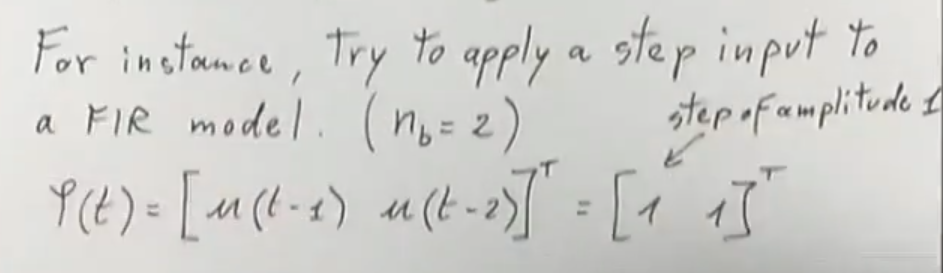 For instance, Try to apply a step input to
a FIR model. (n_b = 2) step of amplitude 1
φ(t) = [u(t-1) u(t-2)]^T = [1 1]^T